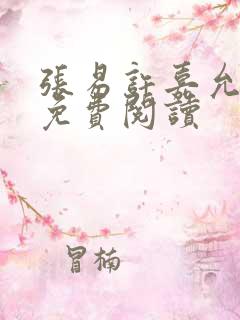 張易許嘉允
免費閱讀
冒楠